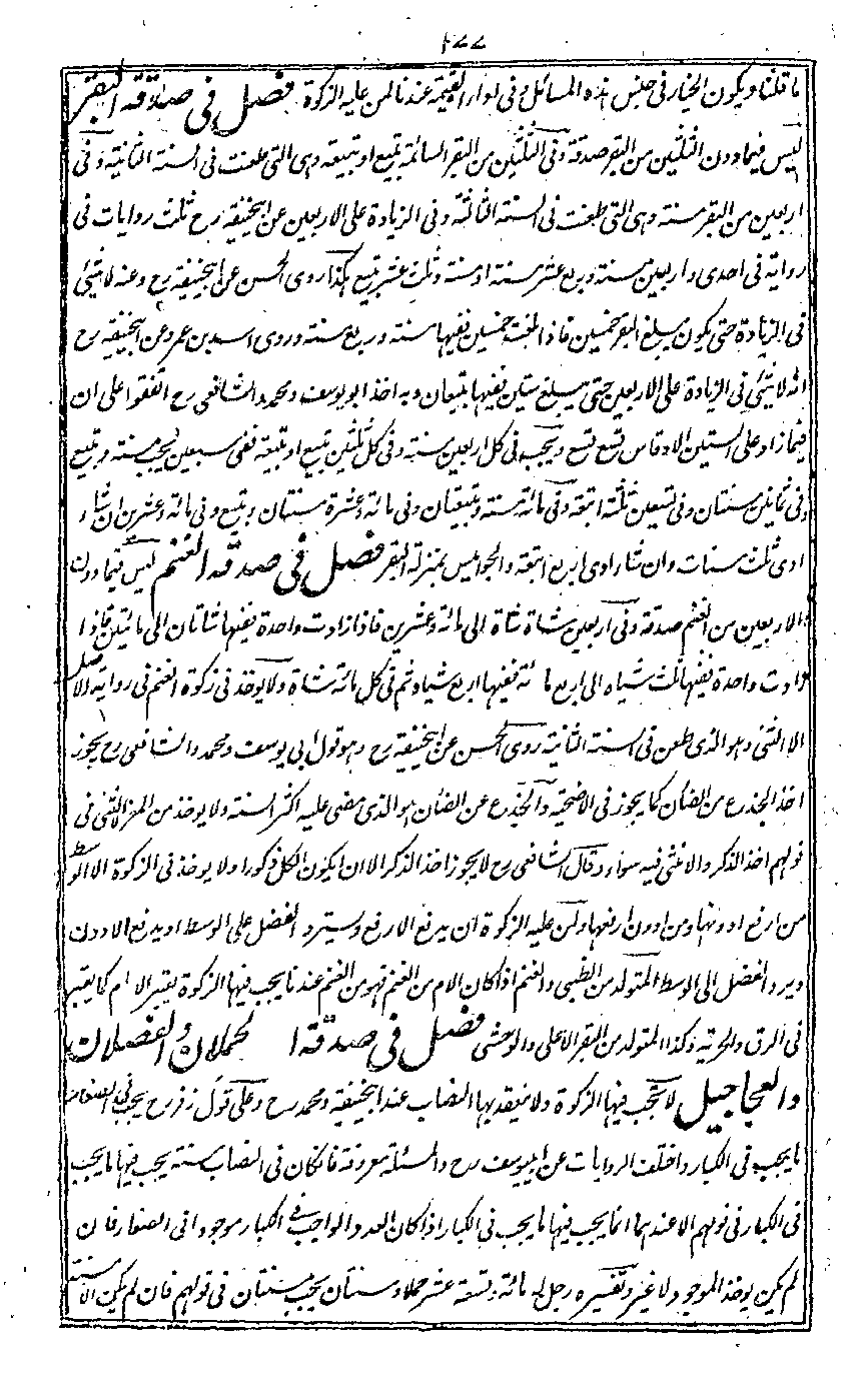 ما قلنا ويكون الخيار في جنس هذه المسائل وفي اداء القيمة عندنا لمن عليه الزكوة فصل في صدقة البقر
ليس فيما دون الثلثين من البقر صدقة وفي الثلثين من البقر السائمة تبيع او تبيعة وهي التي طعنت في السنة الثانية وفي
اربعين من البقر مسنة وهي التي طعنت في السنة الثالثة وفي الزيادة على الاربعين عن ابيحنيفة رح ثلث روايات في
رواية في احدى واربعين مسنة وربع عشر مسنة او مسنة وثلث عشر تبيع هكذا روى الحسن عن ابيحنيفة رح وعنه لا شئ
في الزيادة حتى يكون يبلغ البقر خمسين فاذا بلغت خمسين ففيها مسنة وربع مسنة وروى اسد بن عمرو عن ابيحنيفة رح
انه لا شئ في الزيادة على الاربعين حتى يبلغ ستين ففيها تبيعان وبه اخذ ابو يوسف ومحمد والشافعي رح اتفقوا على ان
فيما زاد على الستين الاوقاص تسع تسع ويجب في كل اربعين مسنة وفي كل ثلثين تبيع او تبيعة ففي سبعين يجب مسنة وتبيع
وفي ثمانين مسنتان وفي تسعين ثلثة اتبعة وفي مائة مسنة وتبيعان وفي مائة وعشرة مسنتان وتبيع وفي مائة وعشرين ان شاء
ادى ثلث مسنات وان شاء ادى اربع اتبعة والجواميس بمنزلة البقر فصل في صدقة الغنم ليس فيما دون
الاربعين من الغنم صدقة وفي اربعين شاة شاة الى مائة وعشرين فاذا زادت واحدة ففيها شاتان الى مائتين فاذا
زادت واحدة ففيها ثلث شياه الى اربع مائة ففيها اربع شياه ثم في كل مائة شاة ولا يوخذ في زكوة الغنم في رواية الاصل
الا الثني وهو الذي طعن في السنة الثانية روى الحسن عن ابيحنيفة رح وهو قول ابي يوسف ومحمد والشافعي رح يجوز
اخذ الجذع من الضان كما يجوز في الاضحية والجذع عن الضان هو الذي مضى عليه اكثر السنة ولا يوخذ من المعز الا الثني في
قولهم اخذ الذكر والانثى فيه سواء وقال الشافعي رح لا يجوز اخذ الذكر الا ان يكون الكل ذكورا ولا يوخذ في الزكوة الا الوسط
من ارفع ادونها ومن ادون ارفعها ولمن عليه الزكوة ان يدفع الارفع ويسترد الفضل على الوسط او يدفع الادون
ويرد الفضل الى الوسط المتولد من الظبي والغنم اذا كان الام من الغنم فهو من الغنم عندنا يجب فيها الزكوة يعتبر الام كما يعتبر
في الرق والحرية وكذا المتولد من البقر الاهلي والوحشي فصل في صدقة الحملان والفصلان
والعجاجيل لا تجب فيها الزكوة ولا ينعقد بها النصاب عند ابيحنيفة ومحمد رح وعلى قول زفر رح يجب في الصغار
ما يجب في الكبار واختلف الروايات عن ابي يوسف رح والمسئلة معروفة فان كان في النصاب مسنة يجب فيها ما يجب
في الكبار في قولهم الا عندهما انما يجب فيها ما يجب في الكبار اذا كان العدد الواجب في الكبار موجودا في الصغار فان
لم يكن يوخذ الموجود لا غير وتفسيره رجل له مائة وتسعة عشر حملا ومسنتان يجب مسنتان في قولهم فان لم يكن الا مسنة